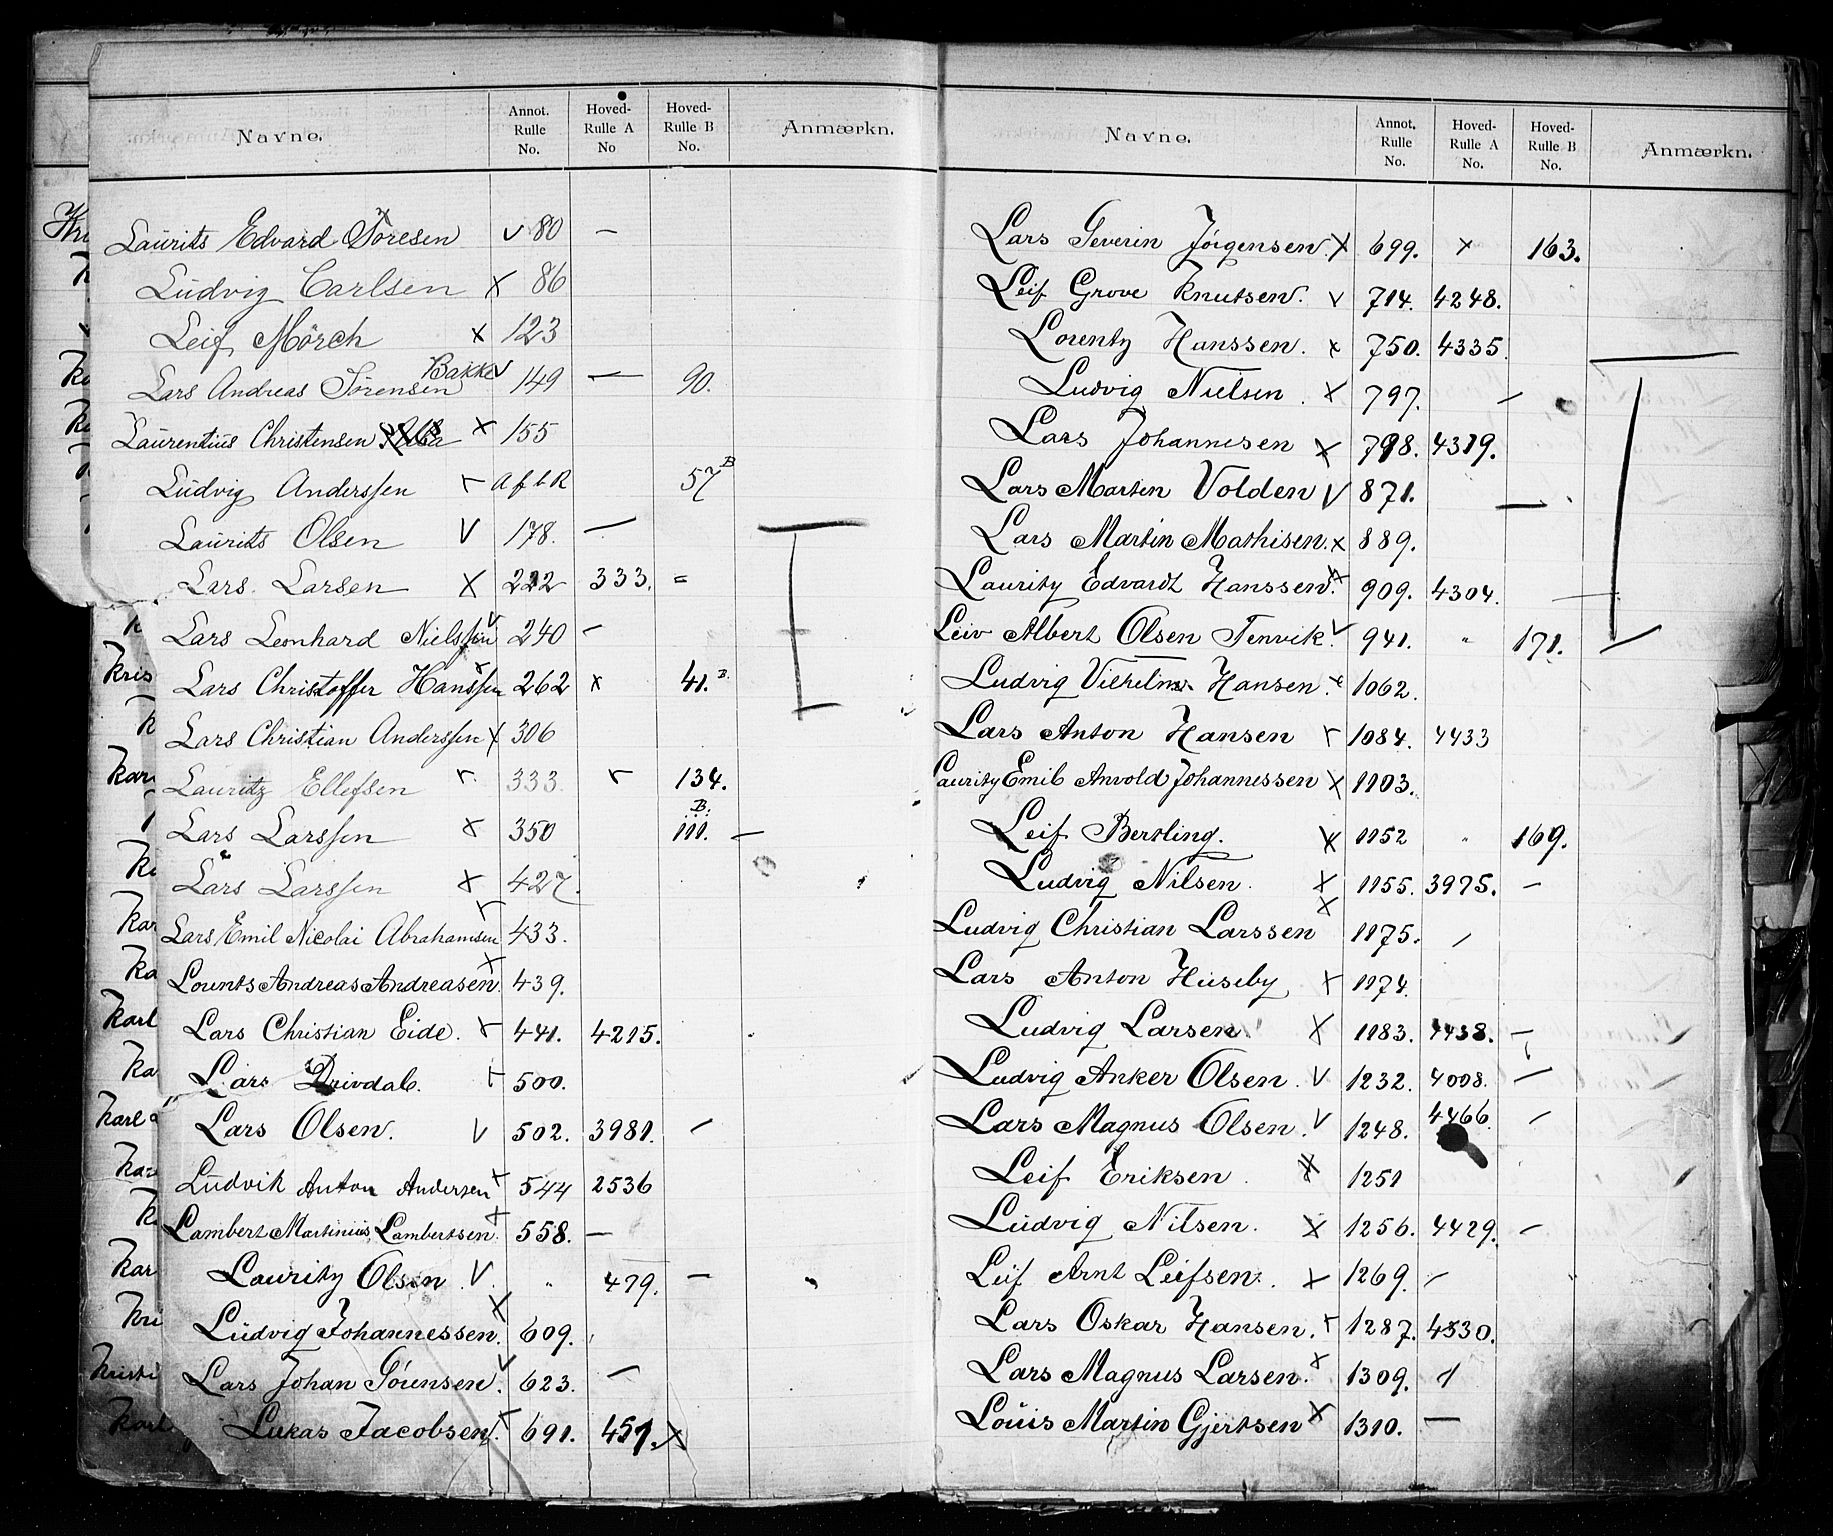 Navne. Annot. Rulle No. Hoved-Rulle A No Hoved-Rulle B No. Anmærkn.
Laurits Edvard Soresen v 80 —
Ludvig Carlsen x 86
Leif Mörch x 123
Lars Andreas Sørensen Bakke v 149 — 90.
Laurentius Christensen x 155
Ludvig Anderssen r afbR 57 B
Laurits Olsen V 178. —
Lars Larsen X 222 333. =
Lars Leonhard Nielssen v 240 —
Lars Christoffer Hanssen x 262 x 41. B.
Lars Christian Anderssen x 306
Lauritz Ellefsen r 333. r 134.
Lars Larssen x 350 B. 111. —
Lars Larssen x 427.
Lars Emil Nicolai Abrahamsen r 433.
Lorents Andreas Andreasen x 439.
Lars Christian Eide. x 441. 4215.
Lars Drivdal. r 500.
Lars Olsen. V 502. 3981. —
Ludvik Anton Andersen x 544 2536
Lambert Martinius Lambertsen. x 558. —
Lauritz Olsen V. " 479. —
Ludvig Johannessen. x 609.
Lars Johan Sørensen. v 623. —
Lukas Jacobsen. r 691. 451. x
Navne. Annot. Rulle No. Hoved-Rulle A No. Hoved-Rulle B No. Anmærkn.
Lars Severin Jörgensen. x 699. x 163.
Leif Grove Knutsen. v 714. 4248.
Lorentz Hanssen. x 750. 4335.
Ludvig Nielsen. x 797. —
Lars Johannesen x 798. 4319.
Lars Martin Volden V 871. —
Lars Martin Mathisen. x 889.
Lauritz Edvardt Hanssen. x 909. 4304.
Leiv Albert Olsen Tenvik. v 941. " 171. —
Ludvig Vilhelm Hansen. x 1062.
Lars Anton Hansen r 1084. 4433
Lauritz Emil Anvold Johannessen x 1103.
Leif Bertling. x 1152 " 169.
Ludvig Nilsen. x 1155. 3975. —
Ludvig Christian Larssen x 1175. /
Lars Anton Huseby x 1174.
Ludvig Larsen x 1183. 4438. —
Ludvig Anker Olsen. V 1232. 4008. —
Lars Magnus Olsen. V 1248. 4466. —
Leif Eriksen. x 1251
Ludvig Nilsen. x 1256. 4429. —
Leif Arnt Leifsen. x 1269. —
Lars Oskar Hansen. r 1287. 4330.
Lars Magnus Larsen. x 1309. /
Louis Martin Gjertsen x 1310. —